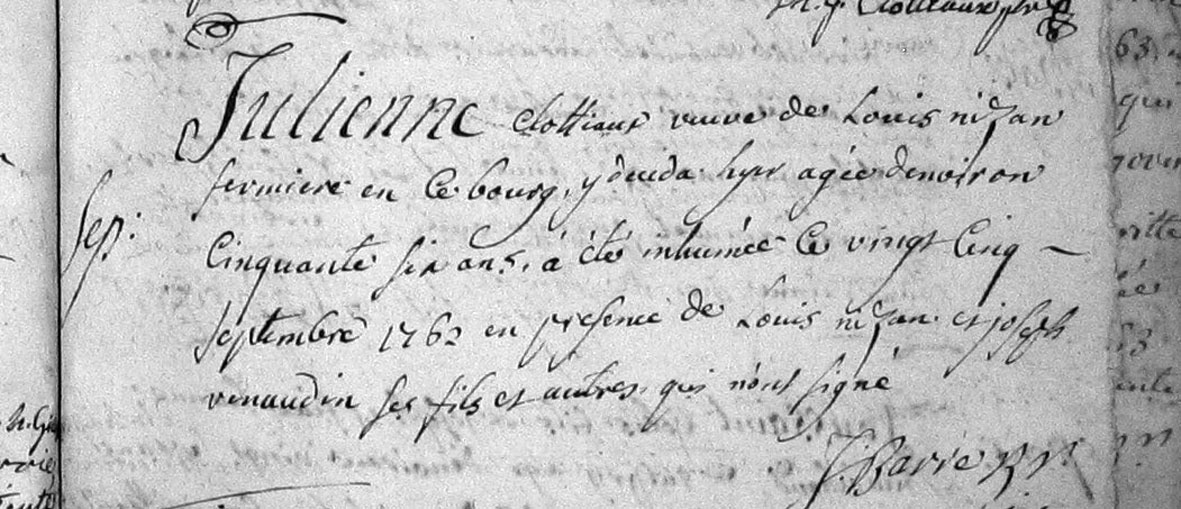 Clottiaux
Julienne Clottiaux veuve de Louis nizan
fermiere en ce bourg, y décéda hyer agée denviron
Sep:
Cinquante six ans, a été inhumée ce vingt Cinq
Septembre 1762 en presence de Louis nizan et joseph
renaudin ses fils et autres qui n'ont signé